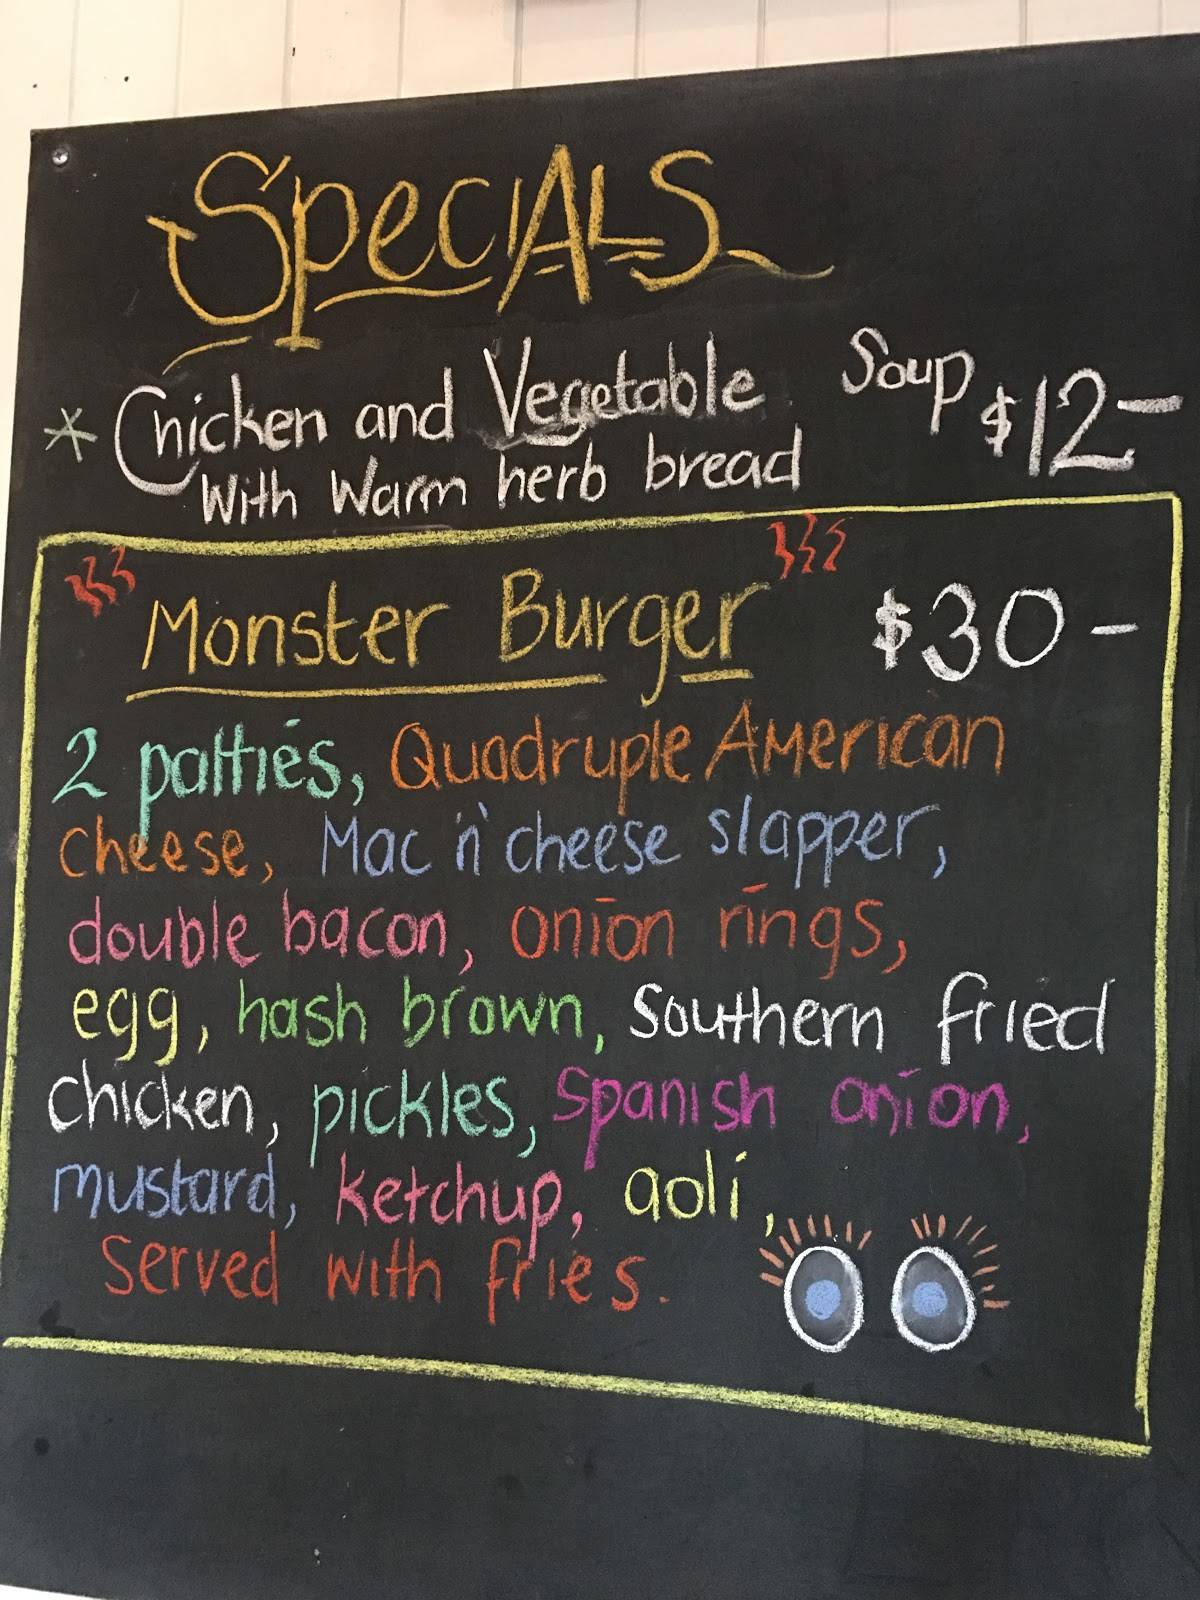 SpecIALS
* Chicken and Vegetable Soup $12-
With Warm herb bread
Monster Burger $30-
2 patties, Quadruple American
cheese, Mac 'n' cheese slapper,
double bacon, onion rings,
egg, hash brown, Southern fried
chicken, pickles, Spanish onion,
mustard, ketchup, aoli,
Served with fries.